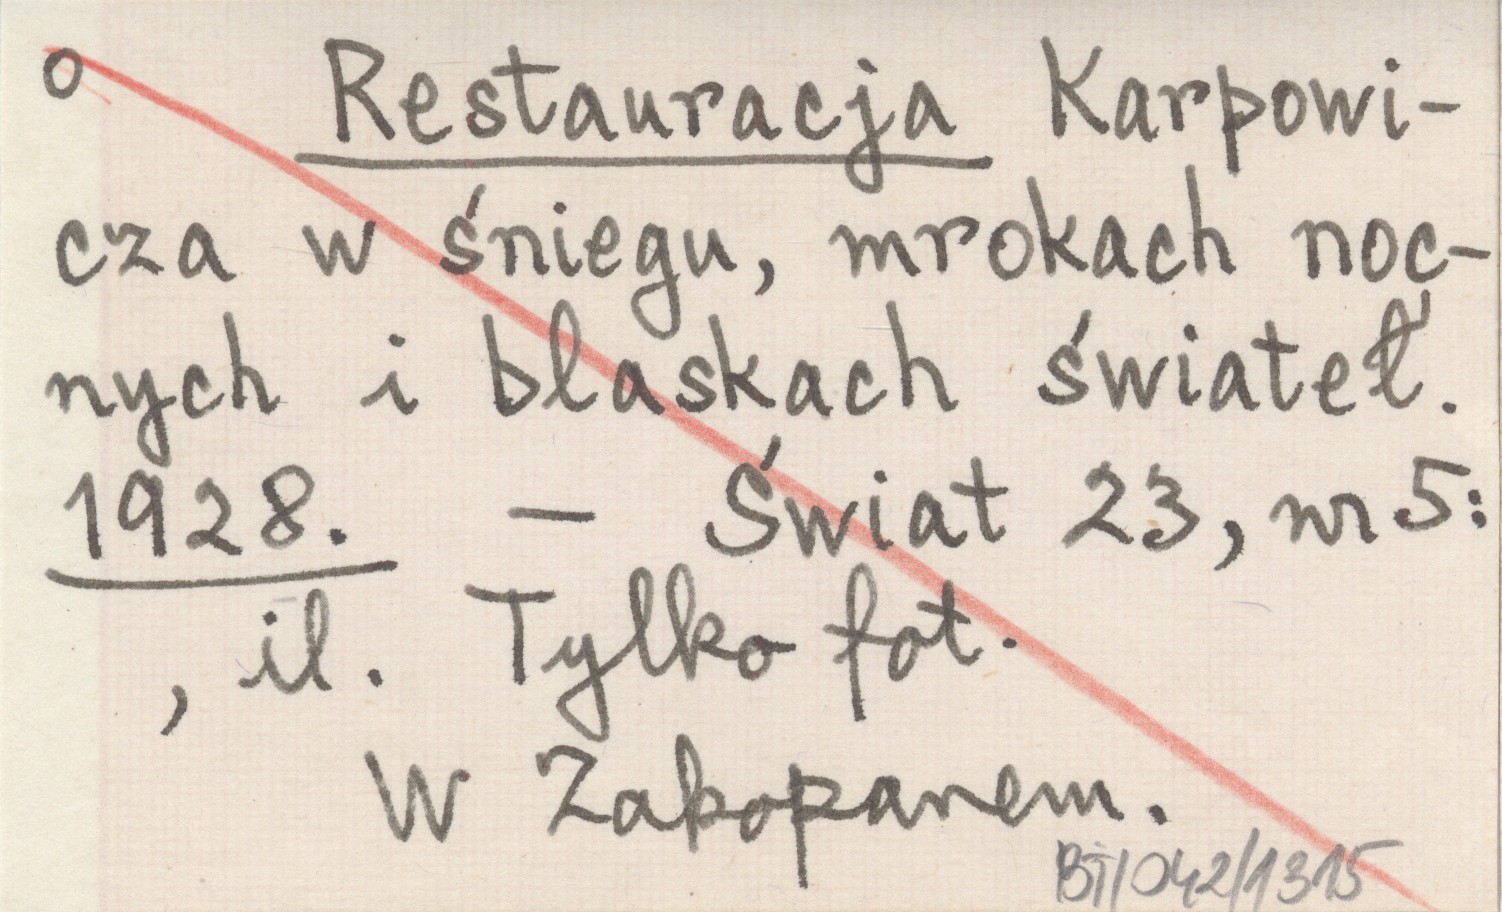 o Restauracja Karpowi-
cza w śniegu, mrokach noc-
nych i blaskach świateł.
1928. — Świat 23, nr 5:
, il. Tylko fot.
W Zakopanem.
BT/042/1315